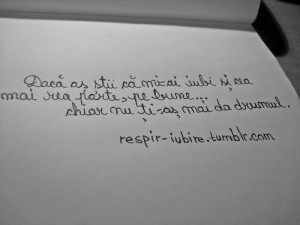 Dacă aș știi că mi-ai iubi și cea
mai rea parte, pe bune...
chiar nu ți-aș mai da drumul.
respir-iubire.tumblr.com